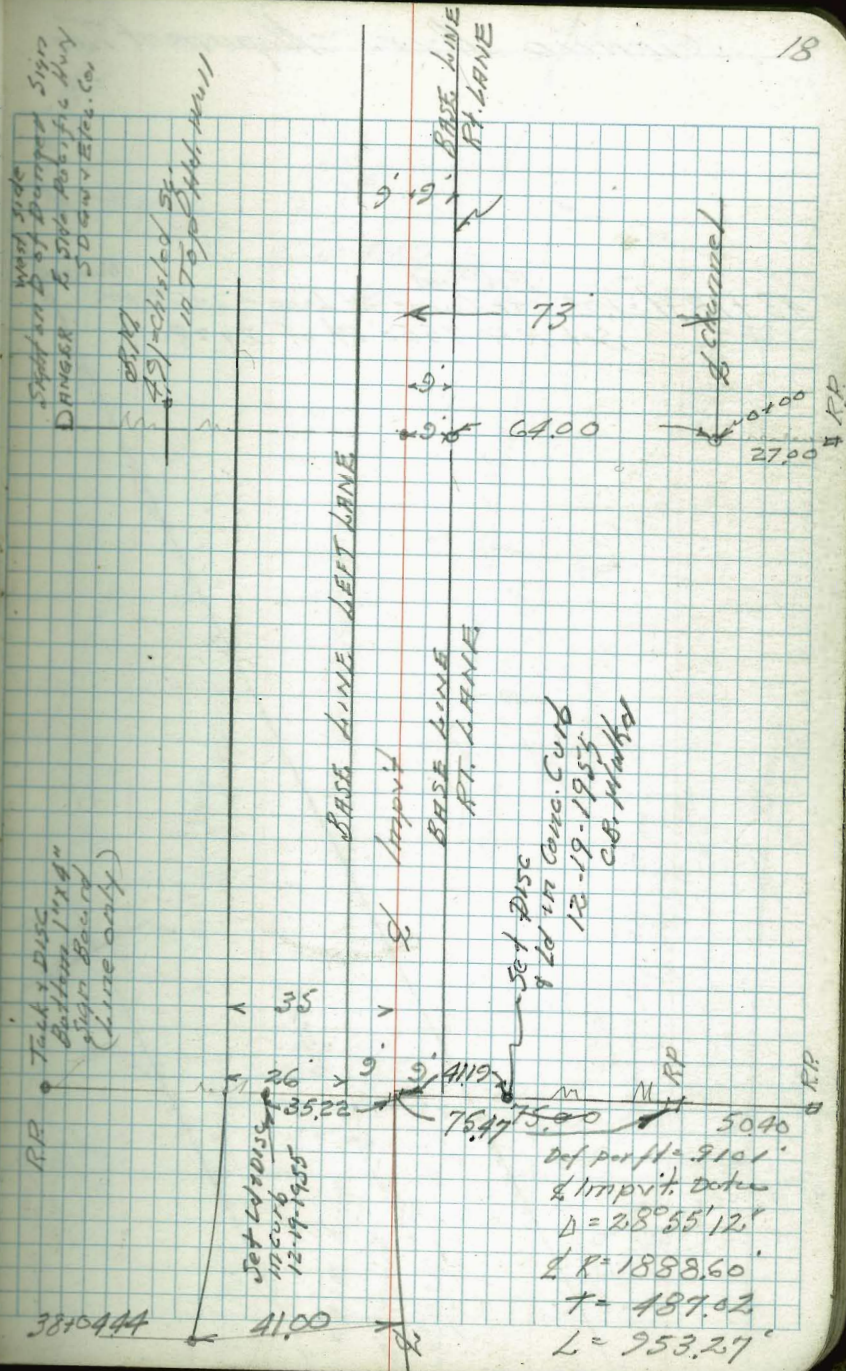 18
West Side
Sight on D of Danger Sign
DANGER E Side Pacific Hwy
S D Gas & Elec. Co.
B.M.
Chisled Sq.
in Top Hd. Wall
BASE LINE
Rt. LANE
9' 9'
73'
9'
9' 64.00
℄ Channel
0+00
27.00
RP
BASE LINE LEFT LANE
℄ Imprvt
BASE LINE
RT. LANE
Set DISC
& Ld in Conc. Curb
12-19-1955
C.B. Walker
RP Tack & DISC
Bottom 1"x4"
Sign Board
(Line only)
35
26'
9'
9'
35.22
41.19
75.47
75.00
RP
50.40
RP
Set Ld & DISC
in Curb
12-19-1955
38+04.44
41.00
℄
Def per ft = .9101'
℄ Imprvt. Data
Δ = 28°55'12"
℄ R = 1888.60'
T = 487.02
L = 953.27'